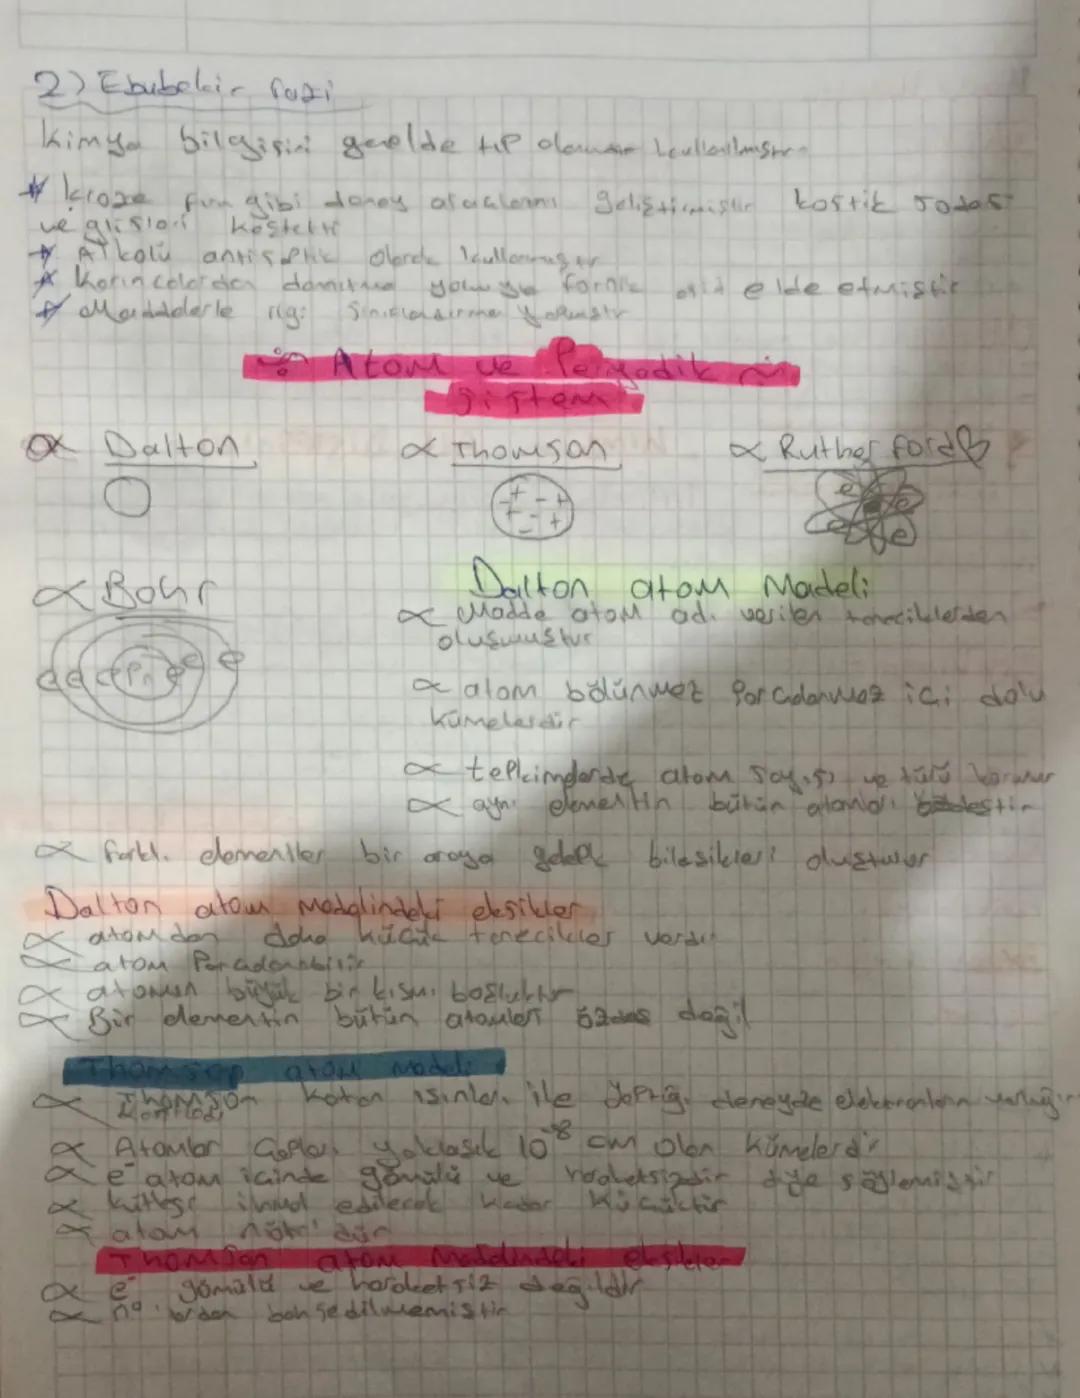 2) Ebubekir razi
Kimya bilgisini genelde tıp alanında kullanılmıştır
* kroze fırın gibi deney araçlarını geliştirmiştir kostik sodası
ve gliserini keşfetti
* Alkolü antiseptik olarak kullanmıştır
* Karıncalardan damıtma yoluyla formik asid elde etmiştir
* Maddelerle ilgi sınıflandırma yapmıştır
Atom ve Periyodik
Sistem
∝ Dalton
∝ Thomson
∝ Rutherford
+ - + + - + - +
e e e e
∝ Bohr
e e e P n e e e
Dalton atom Modeli
∝ Madde atom adı verilen taneciklerden
oluşmuştur
∝ atom bölünmez parçalanmaz içi dolu
kümelerdir
∝ tepkimelerde atom sayısı ve türü korunur
∝ aynı elementin bütün atomları özdeştir
∝ farklı elementler bir araya gelerek bileşikleri oluşturur
Dalton atom modelindeki eksikler
∝ atomdan daha küçük tanecikler vardır
∝ atom Parçalanabilir
∝ atomun büyük bir kısmı boşluktur
∝ Bir elementin bütün atomları özdeş değil
Thomson atom modeli
∝ Thomson katot ışınları ile yaptığı deneyde elektronların varlığını
∝ Atomlar Çapları yaklaşık 10⁻⁸ cm olan kümelerdir
∝ e⁻ atom içinde gömülü ve hareketsizdir diye söylemiştir
∝ kütlesi ihmal edilecek kadar küçüktür
∝ atom nötr'dür
Thomson atom modelindeki eksikler
∝ e⁻ gömülü ve hareketsiz değildir
∝ n⁰'lardan bahsedilmemiştir